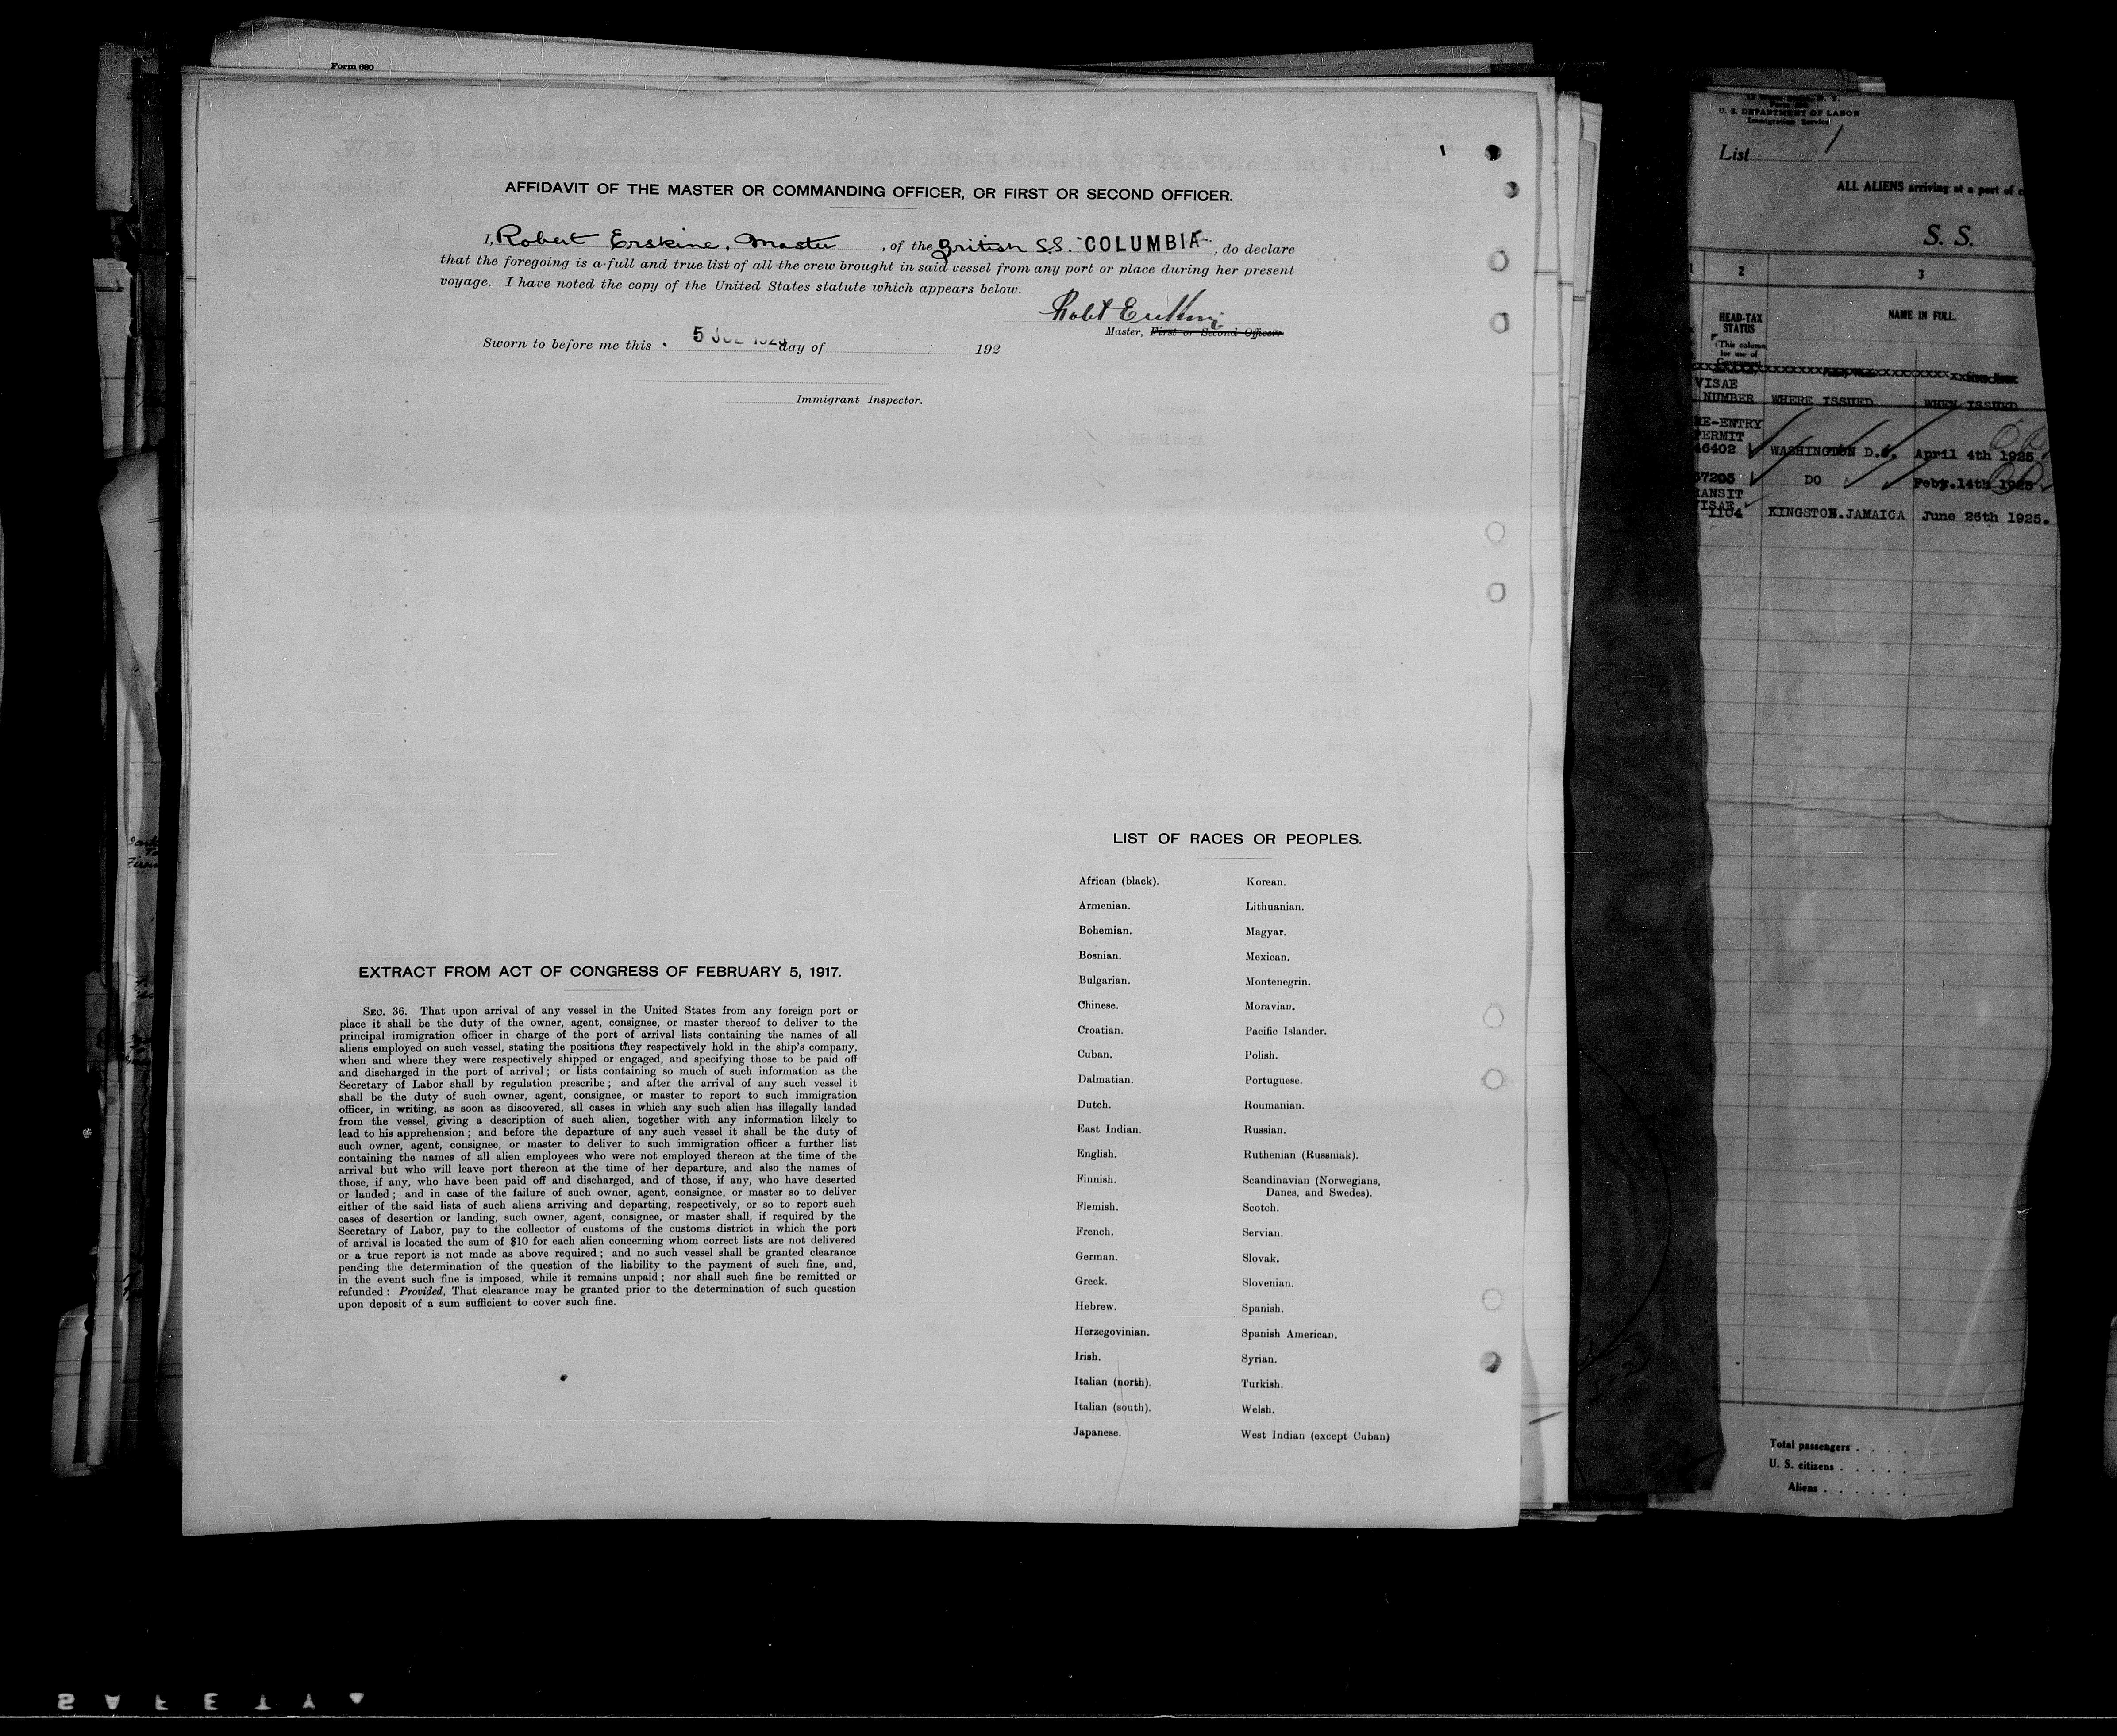 Form 680
AFFIDAVIT OF THE MASTER OR COMMANDING OFFICER, OR FIRST OR SECOND OFFICER.
I, Robert Erskine, Master, of the British S.S. "COLUMBIA", do declare
that the foregoing is a full and true list of all the crew brought in said vessel from any port or place during her present
voyage. I have noted the copy of the United States statute which appears below.
Robt Erskine
Master, First or Second Officer.
Sworn to before me this 5 JUL day of 192
Immigrant Inspector.
EXTRACT FROM ACT OF CONGRESS OF FEBRUARY 5, 1917.
SEC. 36. That upon arrival of any vessel in the United States from any foreign port or
place it shall be the duty of the owner, agent, consignee, or master thereof to deliver to the
principal immigration officer in charge of the port of arrival lists containing the names of all
aliens employed on such vessel, stating the positions they respectively hold in the ship's company,
when and where they were respectively shipped or engaged, and specifying those to be paid off
and discharged in the port of arrival; or lists containing so much of such information as the
Secretary of Labor shall by regulation prescribe; and after the arrival of any such vessel it
shall be the duty of such owner, agent, consignee, or master to report to such immigration
officer, in writing, as soon as discovered, all cases in which any such alien has illegally landed
from the vessel, giving a description of such alien, together with any information likely to
lead to his apprehension; and before the departure of any such vessel it shall be the duty of
such owner, agent, consignee, or master to deliver to such immigration officer a further list
containing the names of all alien employees who were not employed thereon at the time of the
arrival but who will leave port thereon at the time of her departure, and also the names of
those, if any, who have been paid off and discharged, and of those, if any, who have deserted
or landed; and in case of the failure of such owner, agent, consignee, or master so to deliver
either of the said lists of such aliens arriving and departing, respectively, or so to report such
cases of desertion or landing, such owner, agent, consignee, or master shall, if required by the
Secretary of Labor, pay to the collector of customs of the customs district in which the port
of arrival is located the sum of $10 for each alien concerning whom correct lists are not delivered
or a true report is not made as above required; and no such vessel shall be granted clearance
pending the determination of the question of the liability to the payment of such fine, and,
in the event such fine is imposed, while it remains unpaid; nor shall such fine be remitted or
refunded: Provided, That clearance may be granted prior to the determination of such question
upon deposit of a sum sufficient to cover such fine.
LIST OF RACES OR PEOPLES.
African (black).
Armenian.
Bohemian.
Bosnian.
Bulgarian.
Chinese.
Croatian.
Cuban.
Dalmatian.
Dutch.
East Indian.
English.
Finnish.
Flemish.
French.
German.
Greek.
Hebrew.
Herzegovinian.
Irish.
Italian (north).
Italian (south).
Japanese.
Korean.
Lithuanian.
Magyar.
Mexican.
Montenegrin.
Moravian.
Pacific Islander.
Polish.
Portuguese.
Roumanian.
Russian.
Ruthenian (Russniak).
Scandinavian (Norwegians,
Danes, and Swedes).
Scotch.
Servian.
Slovak.
Slovenian.
Spanish.
Spanish American.
Syrian.
Turkish.
Welsh.
West Indian (except Cuban)
U. S. DEPARTMENT OF LABOR
Immigration Service
List 1
ALL ALIENS arriving at a port of
S. S.
2 3
HEAD-TAX
STATUS
(This column
for use of
NAME IN FULL.
VISAE
NUMBER WHERE ISSUED WHEN ISSUED
RE-ENTRY
PERMIT
46402 WASHINGTON D.C. April 4th 1925
57205 DO Feby.14th 1925
TRANSIT
VISAE
1104 KINGSTON.JAMAICA June 26th 1925.
Total passengers . . . .
U. S. citizens . . . . .
Aliens . . . . . .
SAFETY